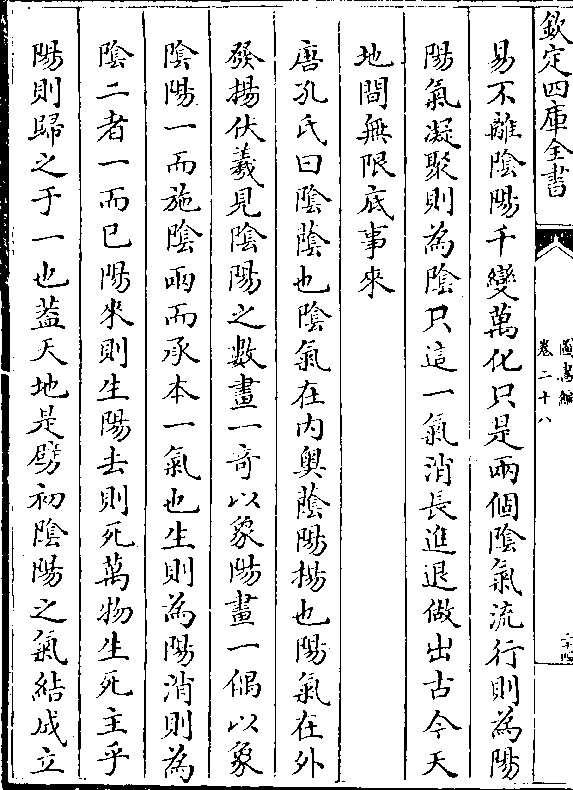 欽定四庫全書
圖書編
卷二十八
二十四
易不離陰陽千變萬化只是兩個陰氣流行則為陽
陽氣凝聚則為陰只這一氣消長進退做出古今天
地間無限底事來
唐孔氏曰陰蔭也陰氣在内奥蔭陽揚也陽氣在外
發揚伏羲見陰陽之數畫一奇以象陽畫一偶以象
陰陽一而施陰兩而承本一氣也生則為陽消則為
陰二者一而已陽來則生陽去則死萬物生死主乎
陽則歸之于一也葢天地是劈初陰陽之氣結成立